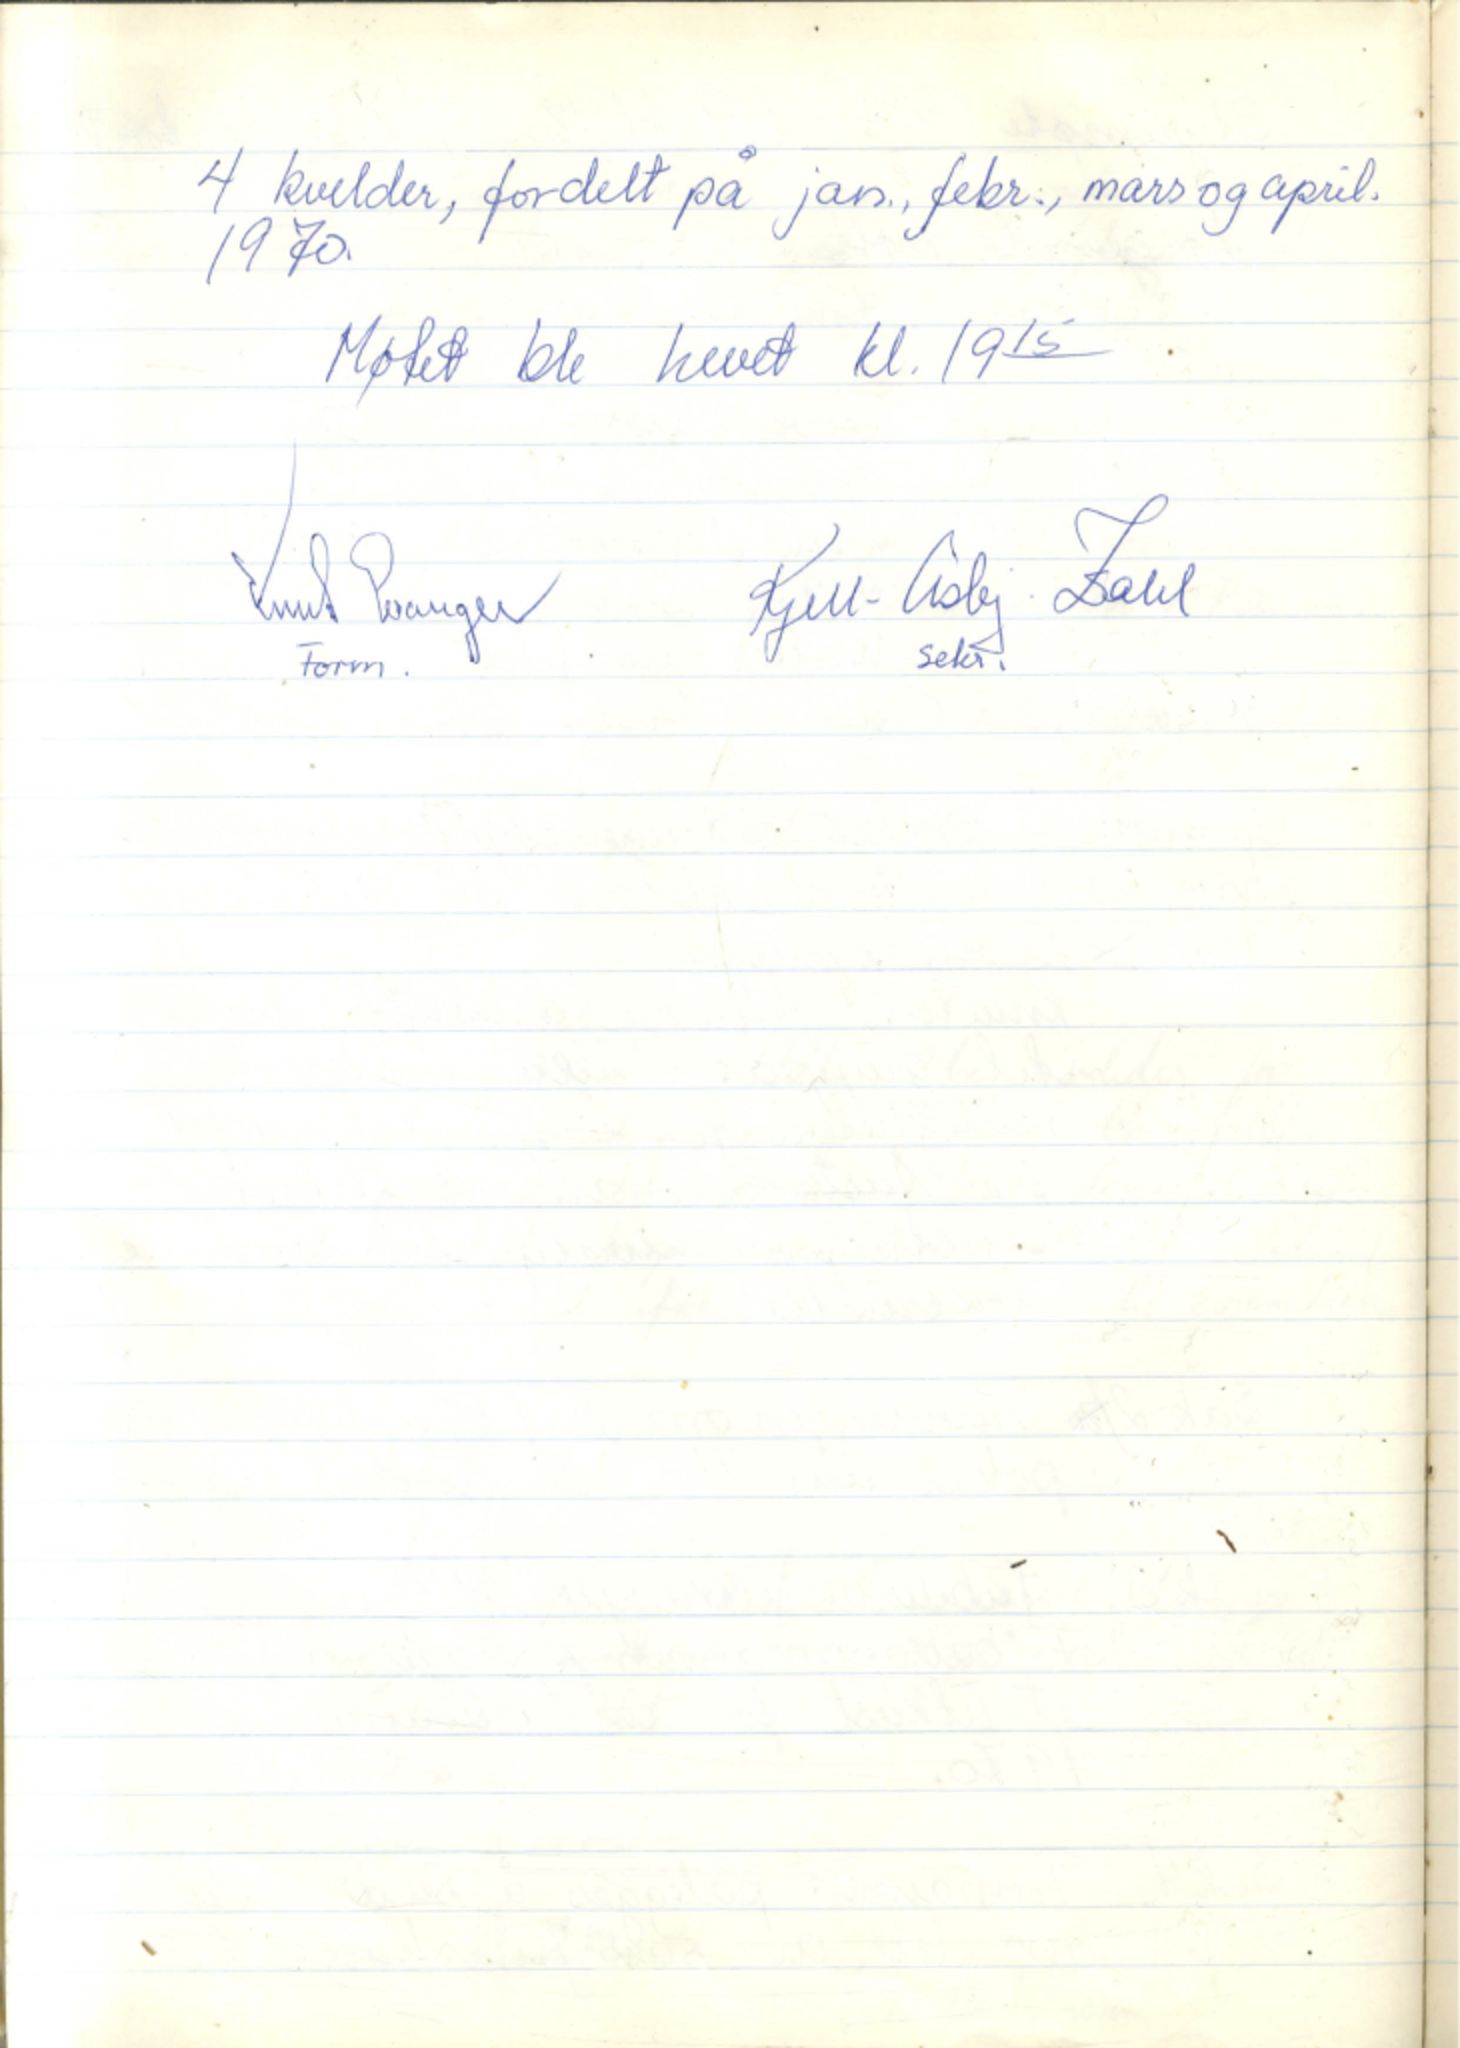 4 kvelder, fordelt på jan., febr., mars og april.
1970.
Møtet ble hevet kl. 19 15
Knut
Form.
Kjell- Asbj. Zahl
sekr.